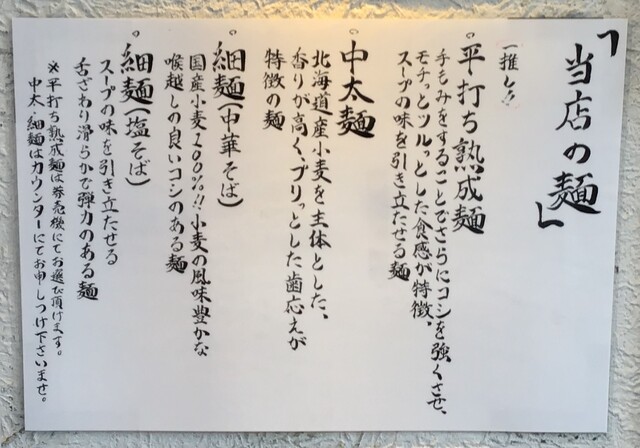 「当店の麺」
一推し!!
。平打ち熟成麺
手もみをすることでさらにコシを強くさせ、
モチっとツルっとした食感が特徴。
スープの味を引き立たせる麺
。中太麺
北海道産小麦を主体とした、
香りが高く、プリっとした歯応えが
特徴の麺
。細麺(中華そば)
国産小麦100%!!小麦の風味豊かな
喉越しの良いコシのある麺
。細麺(塩そば)
スープの味を引き立たせる
舌ざわり滑らかで弾力のある麺
※平打ち熟成麺は券売機にてお選び頂けます。
中太、細麺はカウンターにてお申しつけ下さいませ。